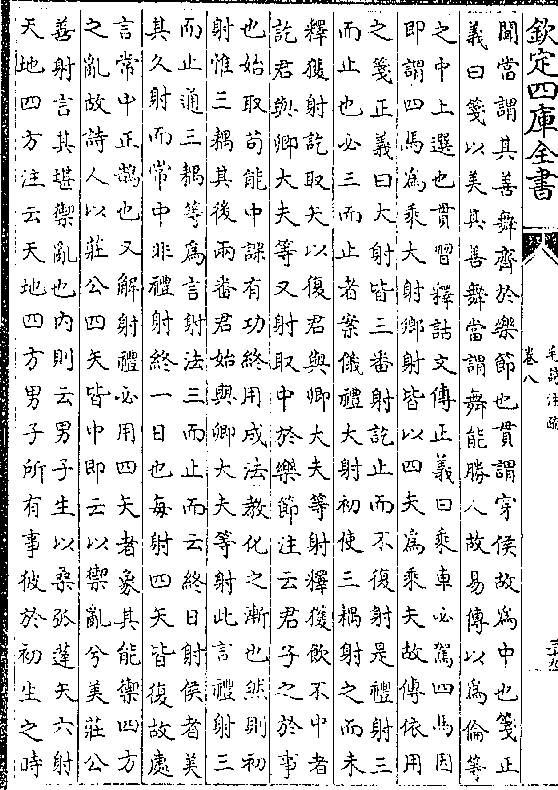 欽定四庫全書
毛詩注疏
卷八
聞當謂其善舞齊於樂節也貫謂穿侯故為中也箋正
義曰箋以美其善舞當謂舞能勝人故易傳以為倫等
之中上選也貫習釋詁文傳正義曰乘車必駕四馬因
即謂四馬為乘大射鄉射皆以四矢為乘矢故傳依用
之箋正義曰大射皆三番射訖止而不復射是禮射三
而止也必三而止者案儀禮大射初使三耦射之而未
釋獲射訖取矢以復君與卿大夫等射釋獲飲不中者
訖君與卿大夫等又射取中於樂節注云君子之於事
也始取苟能中課有功終用成法教化之漸也然則初
射惟三耦其後兩番君始與卿大夫等射此言禮射三
而止通三耦等為言射法三而止而云終日射侯者美
其久射而常中非禮射終一日也每射四矢皆復故處
言常中正鵠也又解射禮必用四矢者象其能禦四方
之亂故詩人以莊公四矢皆中即云以禦亂兮美莊公
善射言其堪禦亂也內則云男子生以桑弧蓬矢六射
天地四方注云天地四方男子所有事彼於初生之時